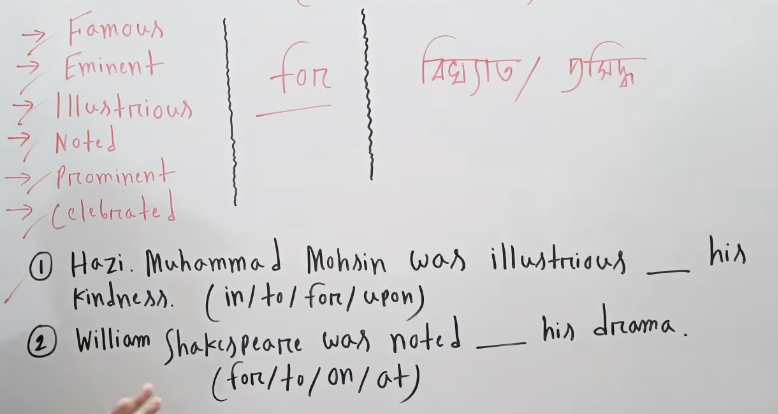 → Famous
→ Eminent
→ Illustrious
→ Noted
→ Prominent
→ Celebrated
for
বিখ্যাত / প্রসিদ্ধ
① Hazi. Muhammad Mohsin was illustrious __ his
kindness. (in/to/for/upon)
② William Shakespeare was noted __ his drama.
(for/to/on/at)